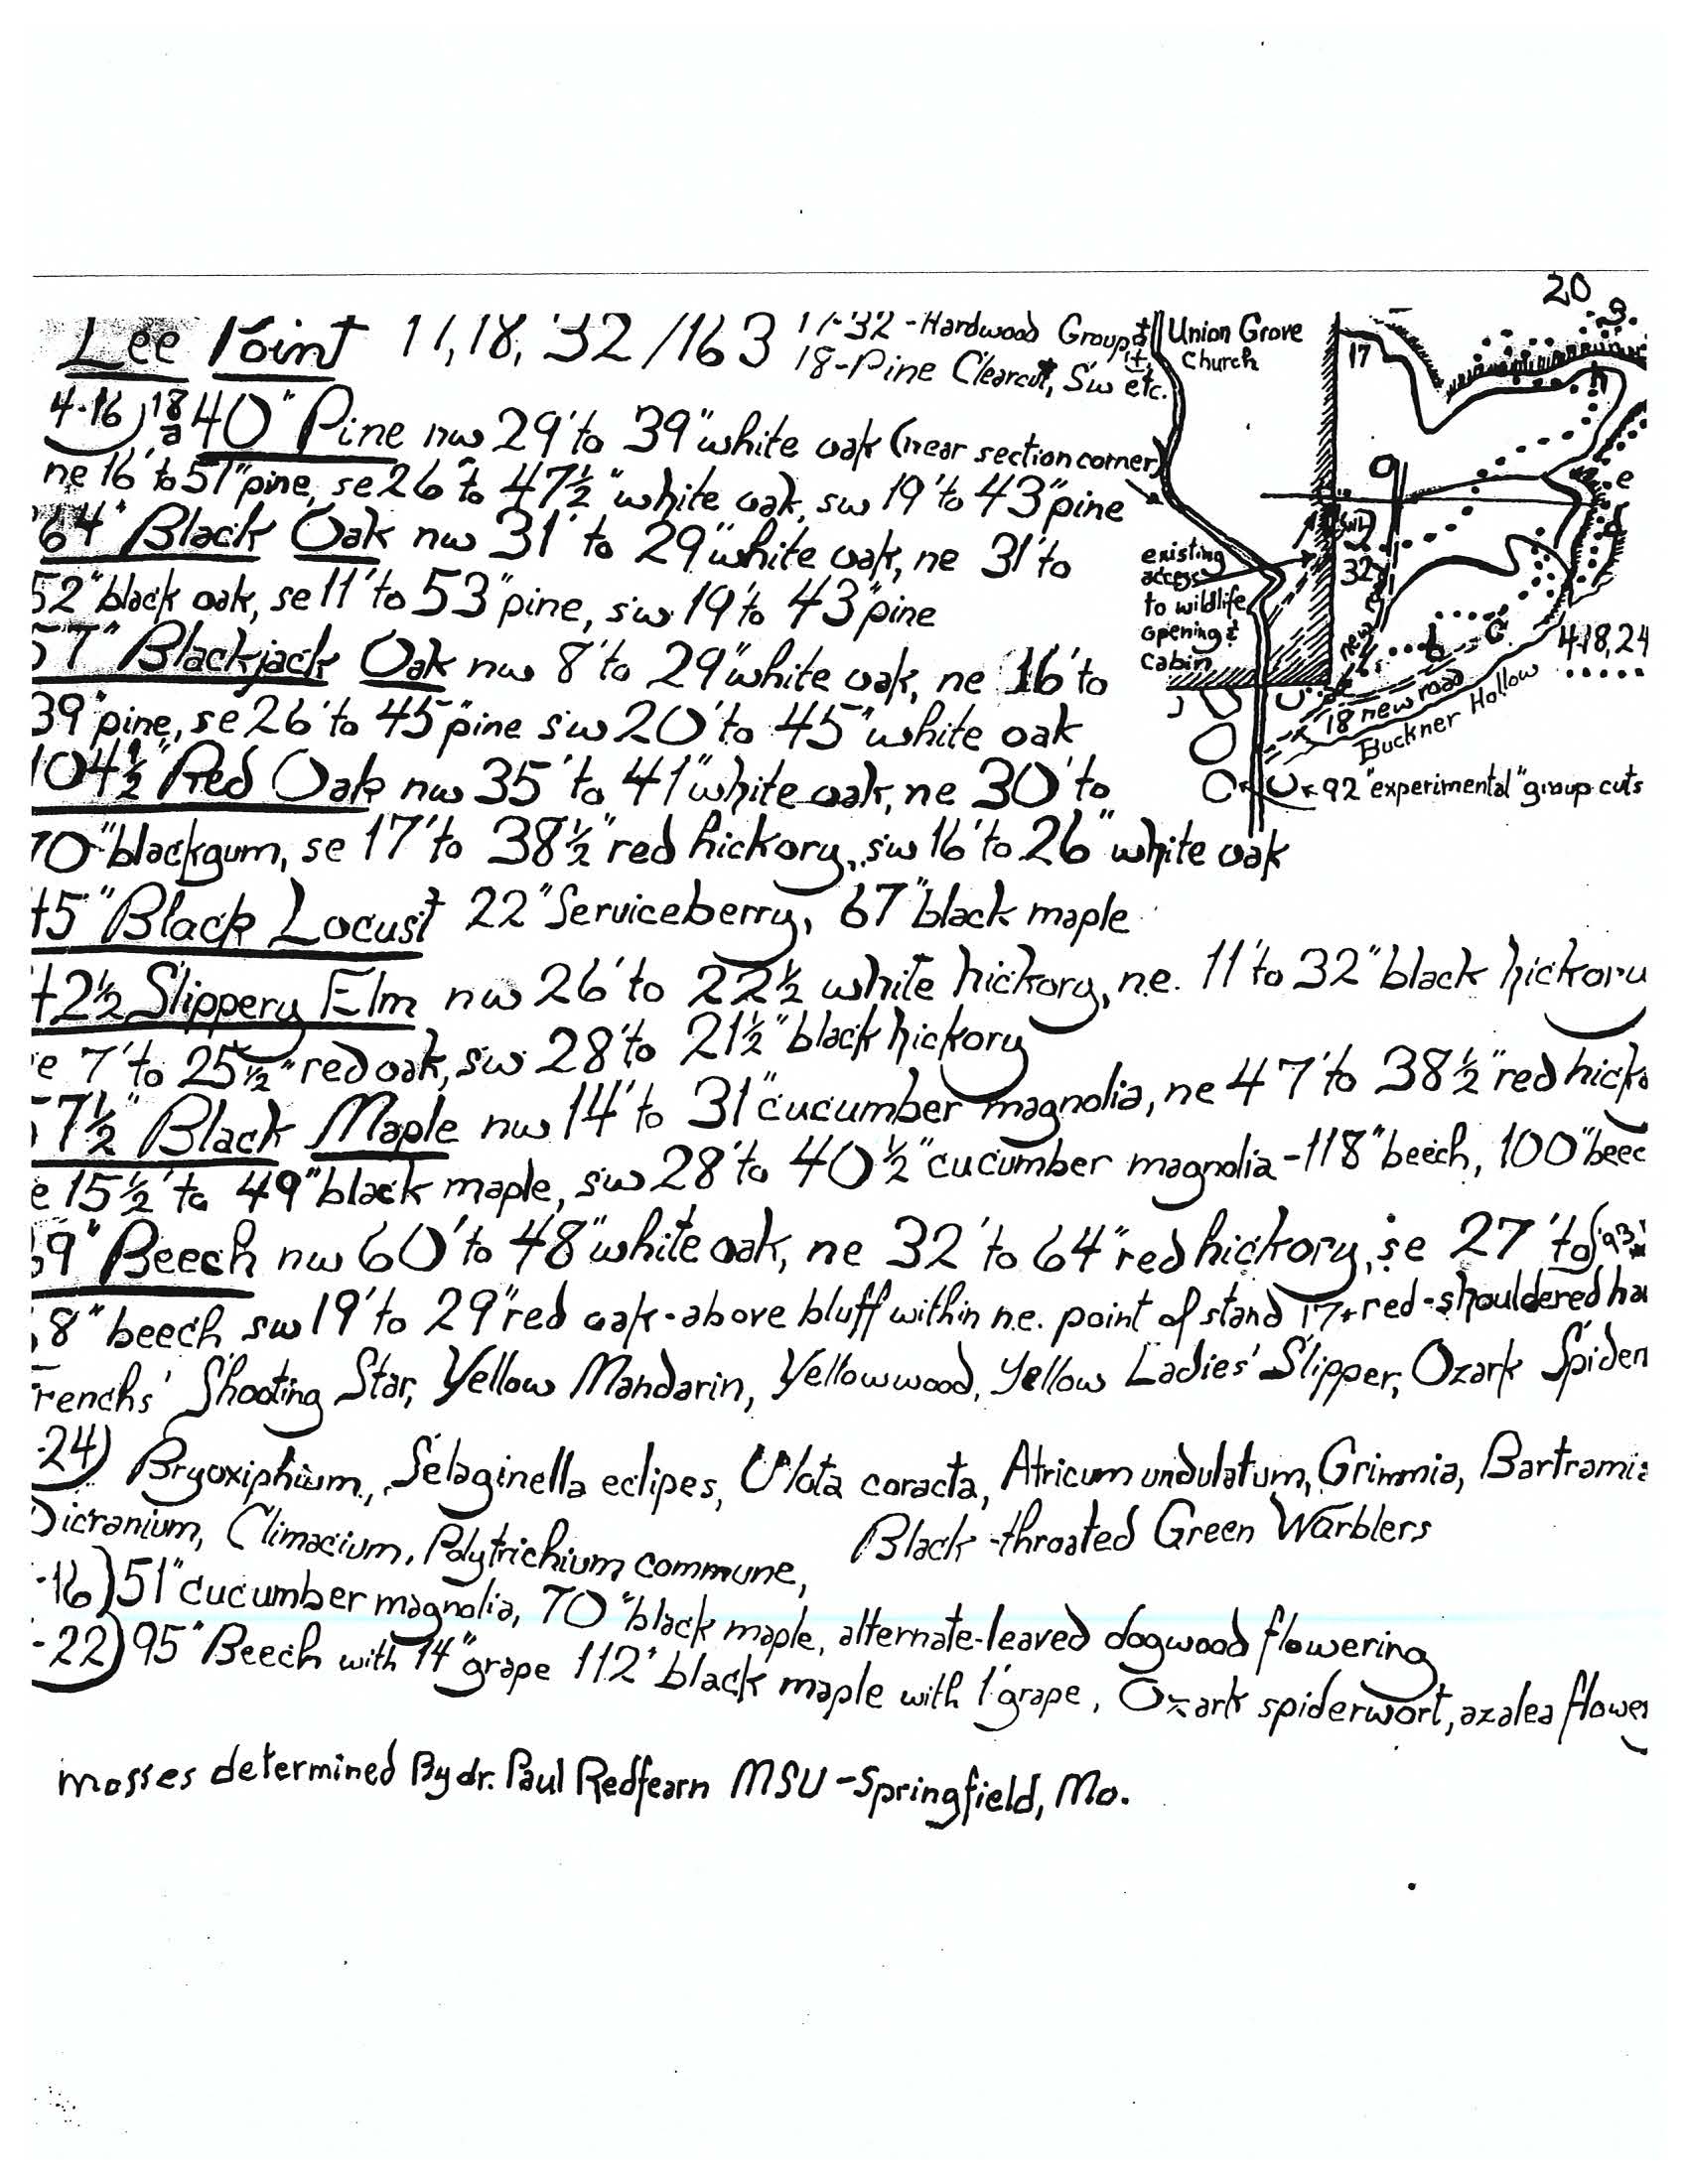 Lee Point 11,18,'32/163 17-'32-Hardwood Group &
18-Pine Clearcut, Sw etc.
4-16) 18 a 40" Pine nw 29' to 39" white oak (near section corner)
ne 16' to 51" pine, se 26' to 47½" white oak, sw 19' to 43" pine
64" Black Oak nw 31' to 29" white oak, ne 31' to
52" black oak, se 11' to 53" pine, sw 19' to 43" pine
57" Blackjack Oak nw 8' to 29" white oak, ne 16' to
39" pine, se 26' to 45" pine sw 20' to 45" white oak
104½" Red Oak nw 35' to 41" white oak, ne 30' to
70" blackgum, se 17' to 38½" red hickory, sw 16' to 26" white oak
45" Black Locust 22" Serviceberry, 67" black maple
42½ Slippery Elm nw 26' to 22½ white hickory, n.e. 11' to 32" black hickory
e 7' to 25½" red oak, sw 28' to 21½" black hickory
57½" Black Maple nw 14' to 31" cucumber magnolia, ne 47' to 38½" red hicko
e 15½' to 49" black maple, sw 28' to 40½" cucumber magnolia-118" beech, 100" beec
9" Beech nw 60' to 48" white oak, ne 32' to 64" red hickory, se 27' to
8" beech sw 19' to 29" red oak-above bluff within n.e. point of stand 17+ red-shouldered ha
renchs' Shooting Star, Yellow Mandarin, Yellowwood, Yellow Ladies' Slipper, Ozark Spider
-24) Bryoxiphium, Selaginella eclipes, Ulota coracta, Atricum undulatum, Grimmia, Bartramia
Dicranium, Climacium, Polytrichium commune, Black-throated Green Warblers
-16) 51" cucumber magnolia, 70" black maple, alternate-leaved dogwood flowering
-22) 95" Beech with 14" grape 112" black maple with 1' grape, Ozark spiderwort, azalea flower
mosses determined By dr. Paul Redfearn MSU-Springfield, Mo.
Union Grove
Church
20
17
g
h
9
e
d
existing
access
to wildlife
opening &
cabin
32
new
b
c
4-18,24
18 new road
Buckner Hollow
92 "experimental" group cuts